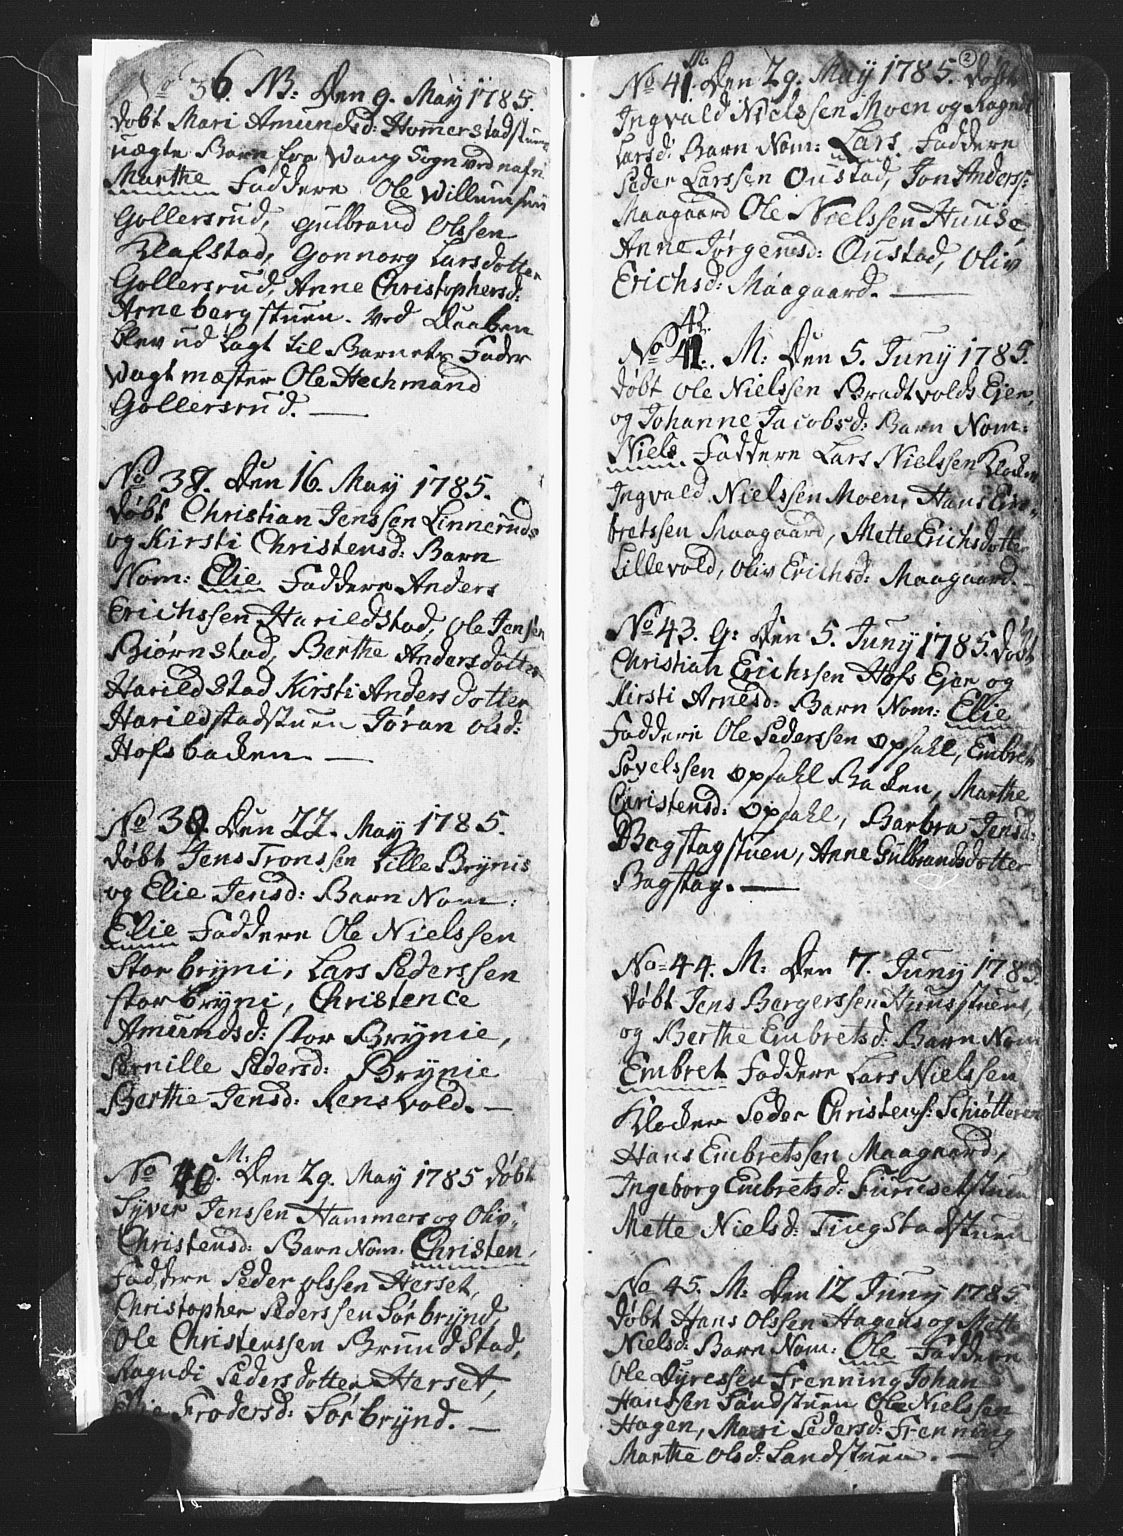 No 36. NB: Den 9. May 1785.
døbt Mari Amundsd: Homerstadstuen
uægte Barn fra Vang Sogn ved nafn
Marthe Faddere Ole Willumsen
Gollersrud, gulbrand Olssen
Klafstad, Gonnorg Larsdotter
Gollersrud, Anne Christophersd:
Arnebergstuen. Ved Daaben
blev ud lagt til Barnets Fader
Vagtmæster Ole Hechmand
Gollersrud. —
No 38. Den 16. May 1785.
døbt Christian Jenssen Linnerud
og Kirsti Christensd: Barn
Nom: Elie Faddere Anders
Erichssen Harildstad, Ole Jensen
Biørnstad, Berthe Andersdotter
Harildstad Kirsti Andersdotter
Harildstadstuen Jøran olsd:
Hofsbacken —
No 38. Den 22. May 1785.
døbt Jens Tronssen Lille Brynis
og Elie Jensd: Barn Nom:
Elie Faddere Ole Nielssen
Stor bryni, Lars Pederssen
stor bryni, Christence
Amundsd: stor Brynie,
Pernille Pedersd: Brynie
Berthe Jensd: Rensvold. —
M:
No 40. Den 29. May 1785 døbt
Syver Jenssen Hammers og Oliv
Christensd: Barn Nom: Christen,
Faddere Peder olssen Herset,
Christopher Pederssen Sør brynd,
Ole Christenssen Brundstad,
Ragndi Pedersdotter Herset,
Frodersd: Sør brynd. —
2
M:
No 41. Den 29. May 1785. døbt
Ingvald Nielssen Moen og Ragndi
Larsd: Barn Nom: Lars Faddere
Peder Larssen Oustad, Jon Anderss:
Maagaard Ole Nielssen Huuse
Anne Jørgensd: Oustad, Oliv
Erichsd: Maagaard. —
42
No 42. M: Den 5. Juny 1785.
døbt Ole Nielssen Bradtvolds Ejer,
og Johanne Jacobsd: Barn Nom:
Niels Faddere Lars Nielssen Klocker
Ingvald Nielssen Moen, Hans Em-
bretssen Maagaard, Mette Erichsdotter
Lillevold, Oliv Erichsd: Maagaard. —
No 43. G: Den 5. Juny 1785. døbt
Christian Erichssen Hofs Ejer og
Kirsti Arnesd: Barn Nom: Elie
Faddere Ole Pederssen Opsahl, Embret
Povelssen Opsahl Backen, Marthe
Christensd: Opsahl, Barbra Jensd:
Bagstagstuen, Anne Gulbrandsdotter
Bagstag. —
No 44. M: Den 7. Juny 1785.
døbt Jens Bergerssen Huusstuen,
og Berthe Embretsd: Barn Nom
Embret Faddere Lars Nielssen
Klocker Peder Christenss: Schiøtteren
Hans Embretssen Maagaard,
Ingeborg Embretsd: Furusetstuen
Mette Nielsd: Tingstadstuen
No 45. M: Den 12 Juny 1785.
døbt Hans Olssen Hagens og Mette
Nielsd: Barn Nom: Ole Faddere
Ole Dyressen Frenning Johan
Hanssen Sandstuen Ole Nielssen
Hagen, Mari Pedersd: Frenning
Marthe olsd: Sandstuen. —